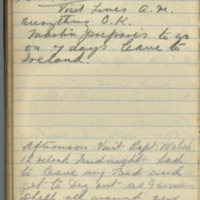 Visit Lines A.M.
Everything O.K.
Martin prepares to go
on 7 days leave to
Ireland.
Afternoon Visit Capt. Walsh
Midnight had
to leave my Bed and
get to Dug out as German
shells